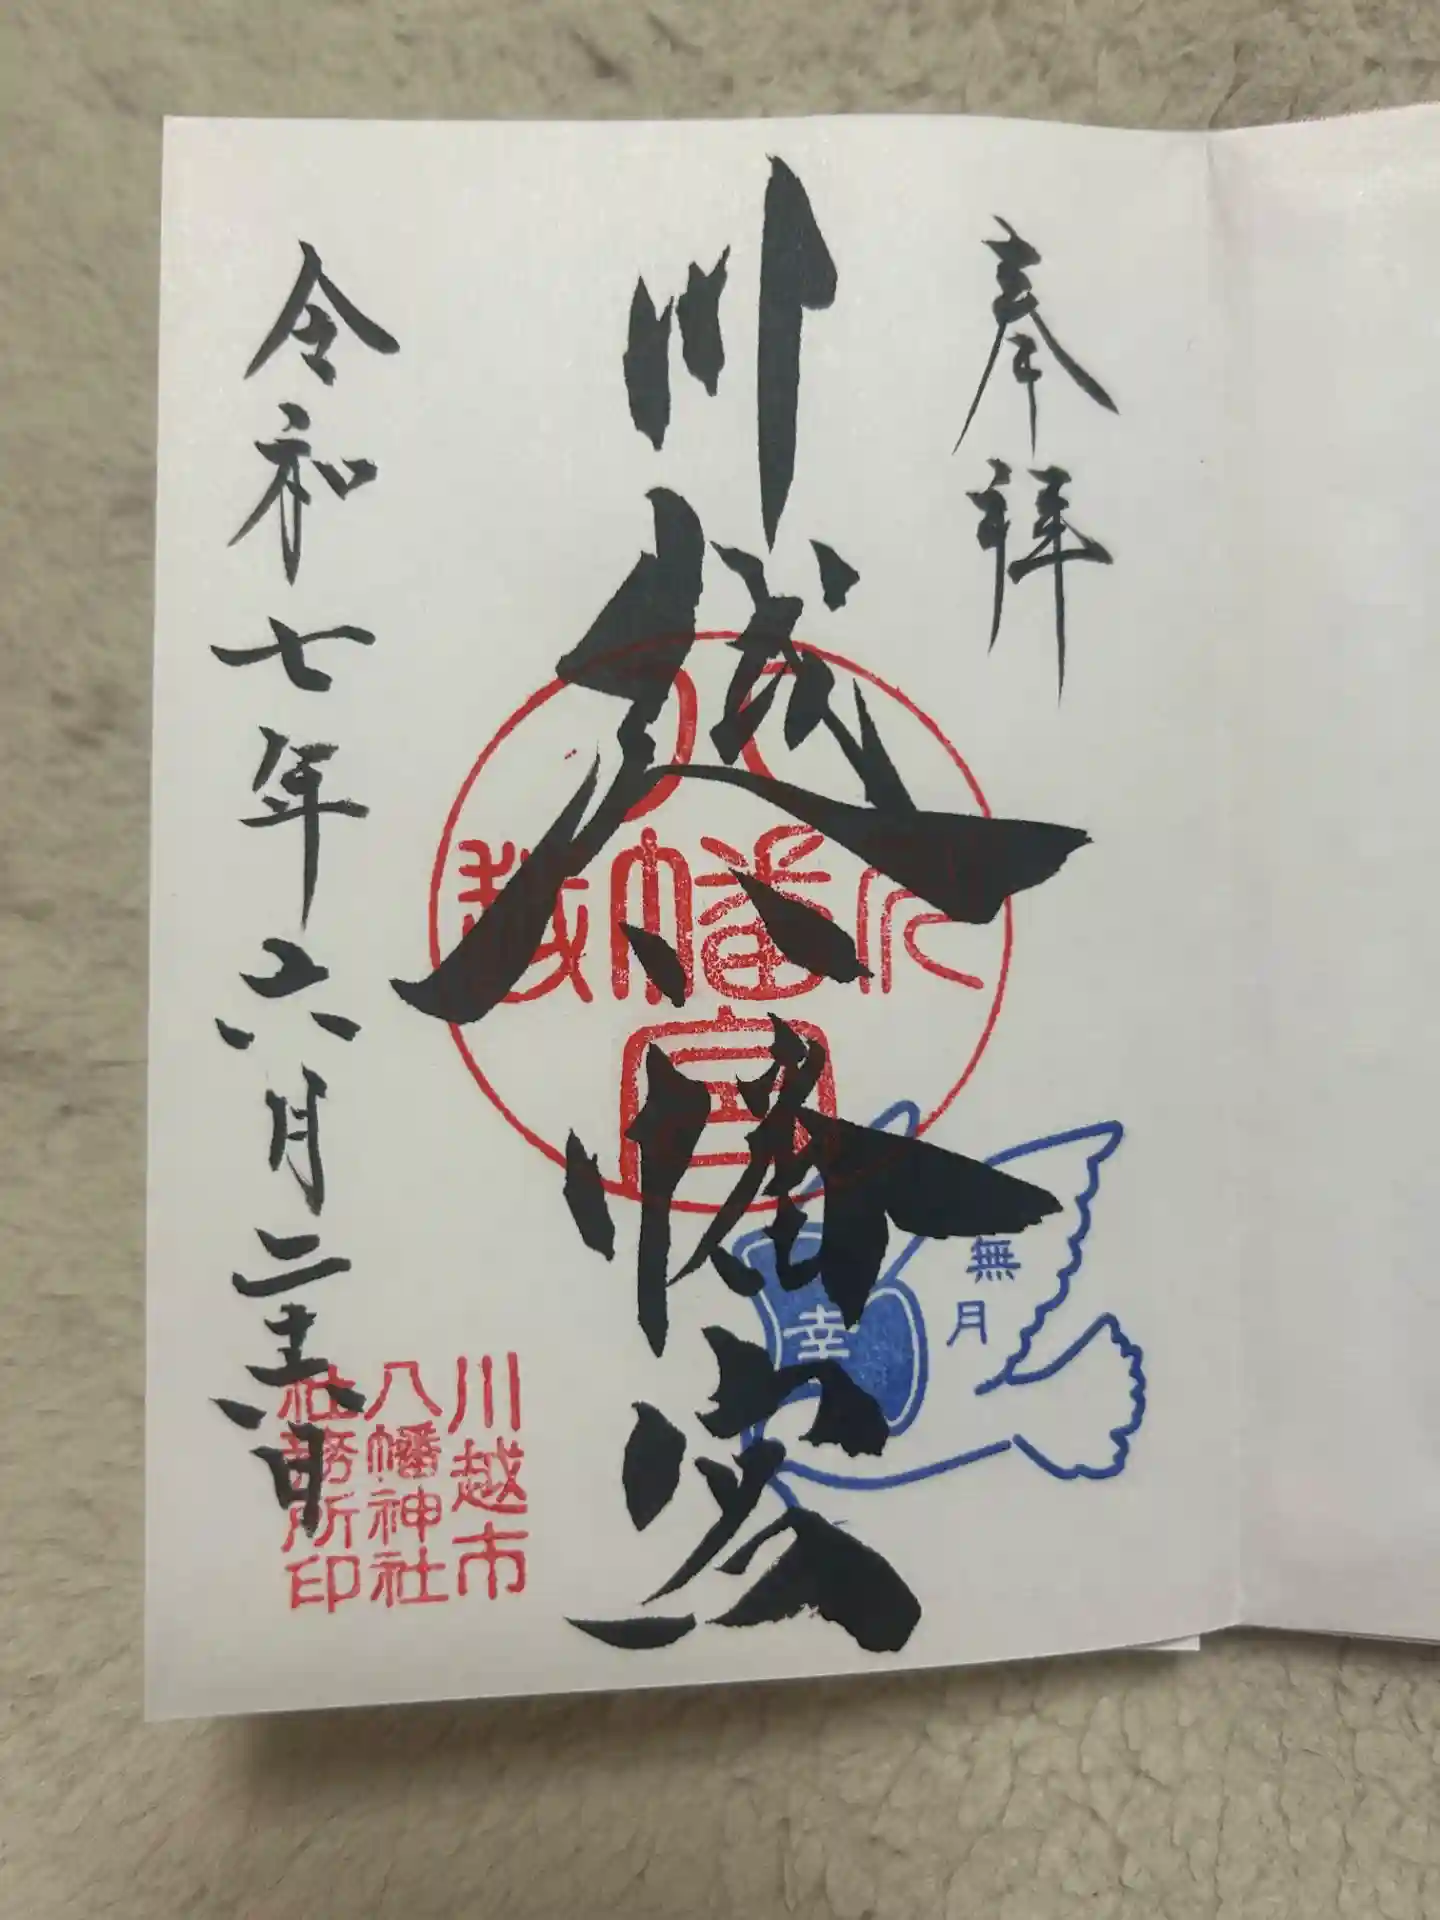 奉拝
川越八幡宮
令和七年六月二十六日
八
川幡越
宮
無
月
幸
川越市
八幡神社
社務所印